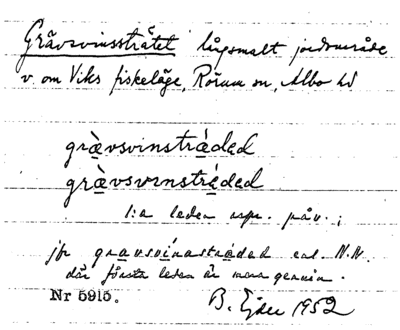 Grävsvinssträtet långsmalt jordområde
v. om Viks fiskeläge, Rörum sn, Albo hd
gràvsvinstrádad
gràvsvɩnstrádad
1:a leden uppr. påv.;
jfr gravsvínastradad enl. N.N.
där första leden är mera genuin.
Nr 5915. B. Ejder 1952